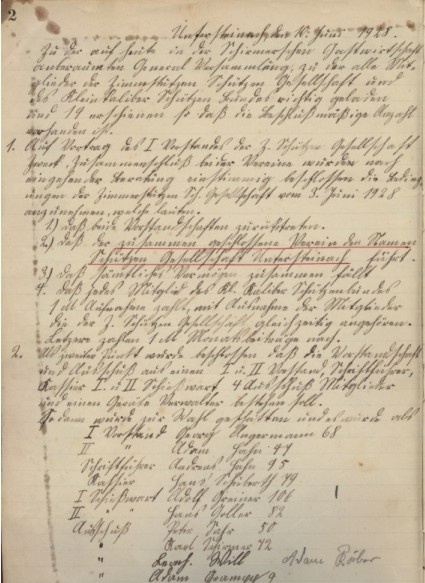 2
Untersteinach, den 10. Juni 1928.
Zu der auf heute in der Schirmerschen Gastwirtschaft
anberaumten General Versammlung, zu der alle Mit-
glieder der Zimmerstutzen Schützen Gesellschaft und
des Kleinkaliber Schützen Bundes richtig geladen
und 19 erschienen so daß die beschlußmäßige Anzahl
vorhanden ist.
1. Auf Vortrag des I Vorstandes der Z. Schützen Gesellschaft
zweck Zusammenschluß beider Vereine wurden nach
eingehender Beratung einstimmig beschlossen die Beding-
ungen der Zimmerstutzen Sch. Gesellschaft vom 3. Juni 1928
anzunehmen, welche lauten.
1) daß beide Vorstandschaften zurücktreten.
2) daß der zusammen geschlossene Verein den Namen
Schützen Gesellschaft Untersteinach führt.
3) daß sämtliches Vermögen zusammen fällt
4. daß jedes Mitglied des Kl. Kaliber Schützenbundes
1 M Aufnahme zahlt, mit Ausnahme der Mitglieder
die der Z. Schützen Gesellschaft gleichzeitig angehören.
Letztere zahlen 1 M Monatsbeiträge
2. Als zweiter Punkt wurde beschlossen daß die Vorstandschaft
und Ausschuß aus einen I u. II Vorstand, Schriftführer,
Kassier I u. II Schießwart 4 Ausschuß Mitglieder
und einen Geräte Verwalter bestehen soll.
Sodann wurde zur Wahl geschritten und es wurde als
I Vorstand Georg Angermann 68
II " Adam Hahn 47
Schriftführer Andreas Hahn 95
Kassier Hans Schübert 49
I Schießwart Adolf Greiner 106
II " Hans Goller 82
Ausschuß Peter Sahr 50
" Karl Schirmer 42
" Leonh. Will
" Adam 9
Adam Röber